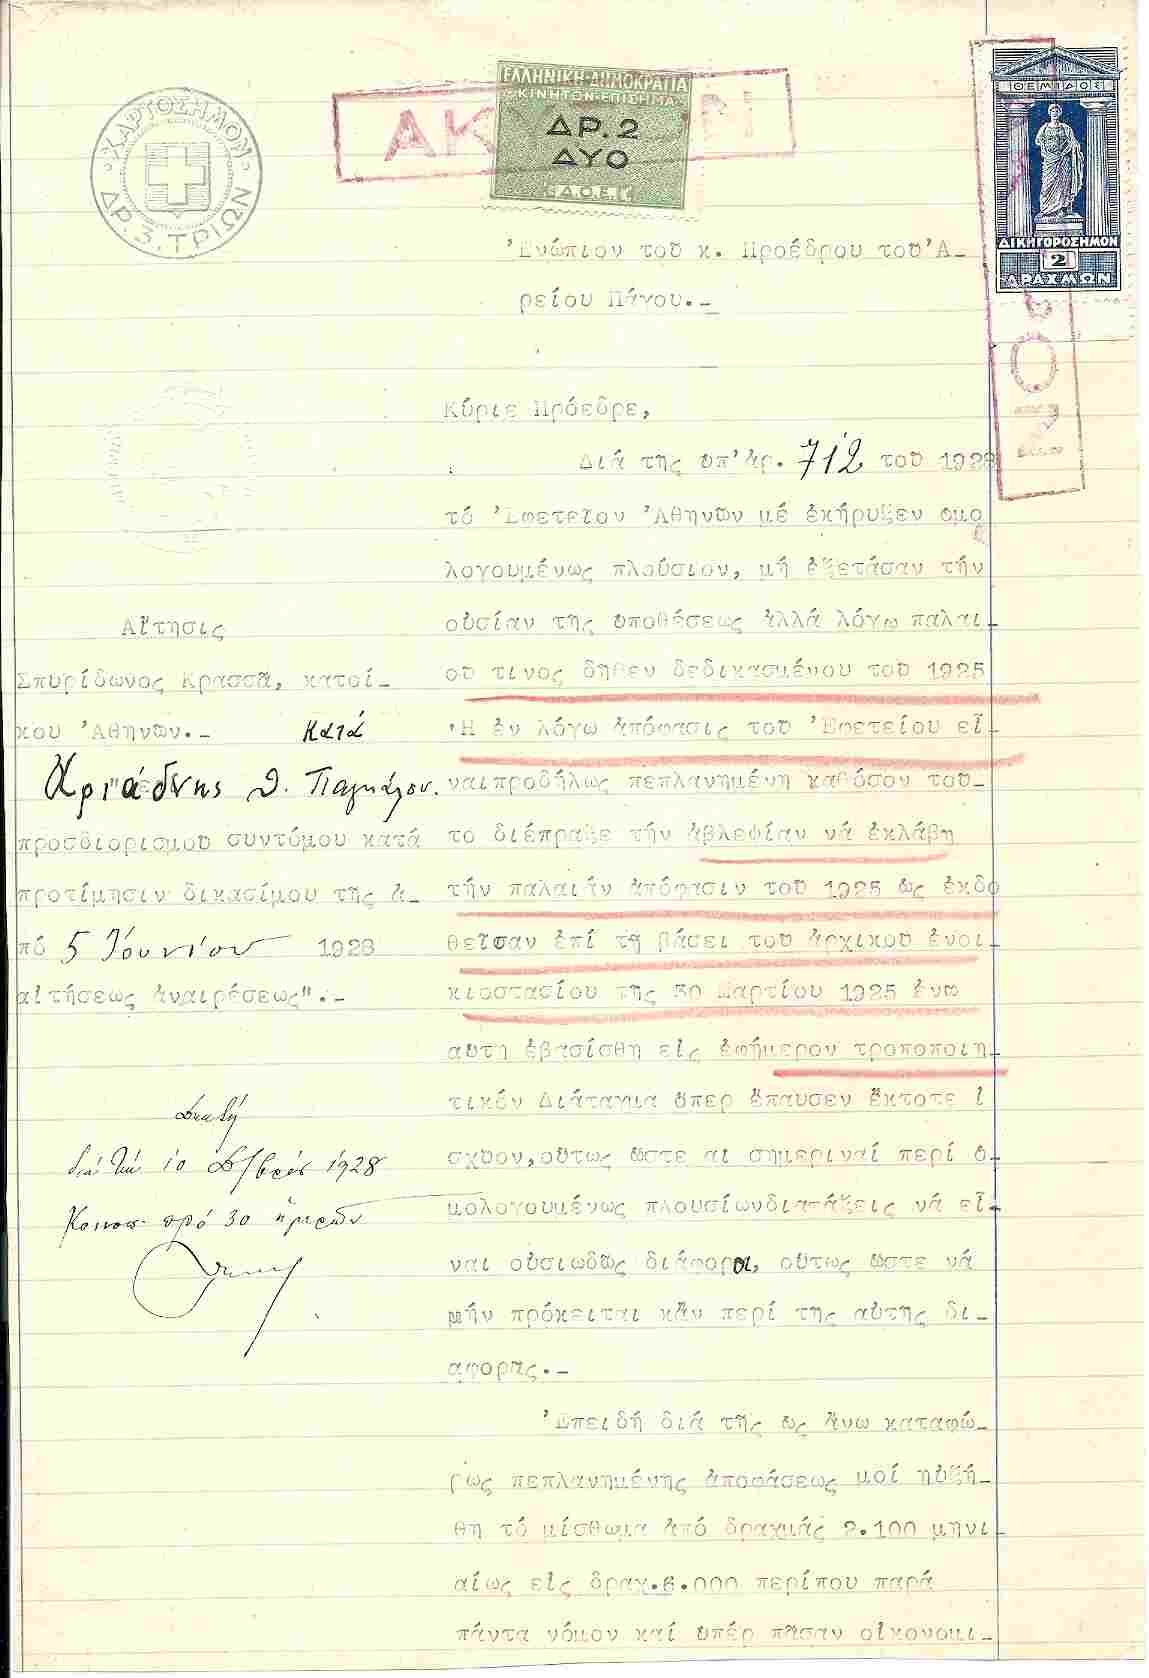 ΧΑΡΤΟΣΗΜΟΝ
ΔΡ. 3. ΤΡΙΩΝ
ΕΛΛΗΝΙΚΗ-ΔΗΜΟΚΡΑΤΙΑ
ΚΙΝΗΤΟΝ-ΕΠΙΣΗΜΑ
ΔΡ.2
ΔΥΟ
Δ.Ο.Ε.
ΘΕΜΙΔΟΣ
ΔΙΚΗΓΟΡΟΣΗΜΟΝ
2
ΔΡΑΧΜΩΝ
Ἐνώπιον τοῦ κ. Προέδρου τοῦ Ἀ_
ρείου Πάγου._
Κύριε Πρόεδρε,
Διά τῆς ὑπ' ἀρ. 712 τοῦ 1928
τό Ἐφετεῖον Ἀθηνῶν μέ ἐκήρυξεν ὁμο
λογουμένως πλούσιον, μή ἐξετάσαν τήν
οὐσίαν τῆς ὑποθέσεως ἀλλά λόγω παλαι_
οῦ τινος δῆθεν δεδικασμένου τοῦ 1925
Ἡ ἐν λόγω ἀπόφασις τοῦ Ἐφετείου εἶ_
ναιπροδήλως πεπλανημένη καθόσον τοῦ_
το διέπραξε τήν ἀβλεψίαν νά ἐκλάβη
τήν παλαιάν ἀπόφασιν τοῦ 1925 ὡς ἐκδο
θεῖσαν ἐπί τῆ βάσει τοῦ ἀρχικοῦ ἐνοι_
κιοστασίου τῆς 30 Μαρτίου 1925 ἐνῶ
αὕτη ἐβασίσθη εἰς ἐφήμερον τροποποιη_
τικόν Διάταγμα ὅπερ ἔπαυσεν ἔκτοτε ἰ
σχῦον,οὕτως ὥστε αἱ σημεριναί περί ὁ_
μολογουμένως πλουσίωνδιατάξεις νά εἶ_
ναι οὐσιωδῶς διάφοραι, οὕτως ὥστε νά
μήν πρόκειται κἄν περί τῆς αὐτῆς δι_
αφορᾶς._
Ἐπειδή διά τῆς ὡς ἄνω καταφώ_
ρως πεπλανημένης ἀποφάσεως μοί ηὐξή_
θη τό μίσθωμα ἀπό δραχμάς 2.100 μηνι_
αίως εἰς δραχ.6.000 περίπου παρά
πάντα νόμον καί ὑπέρ πᾶσαν οἰκονομι_
Αἴτησις
Σπυρίδωνος Κρασσᾶ, κατοί_
κου Ἀθηνῶν._ κατά
Ἀριάδνης Θ. Παγκάλου.
προσδιορισμοῦ συντόμου κατά
προτίμησιν δικασίμου τῆς ἀ_
πό 5 Ἰουνίου 1928
αἰτήσεως ἀναιρέσεως"._
Δεκτή
διά τήν 10 1928
Κοινοπ. πρό 30 ἡμερῶν